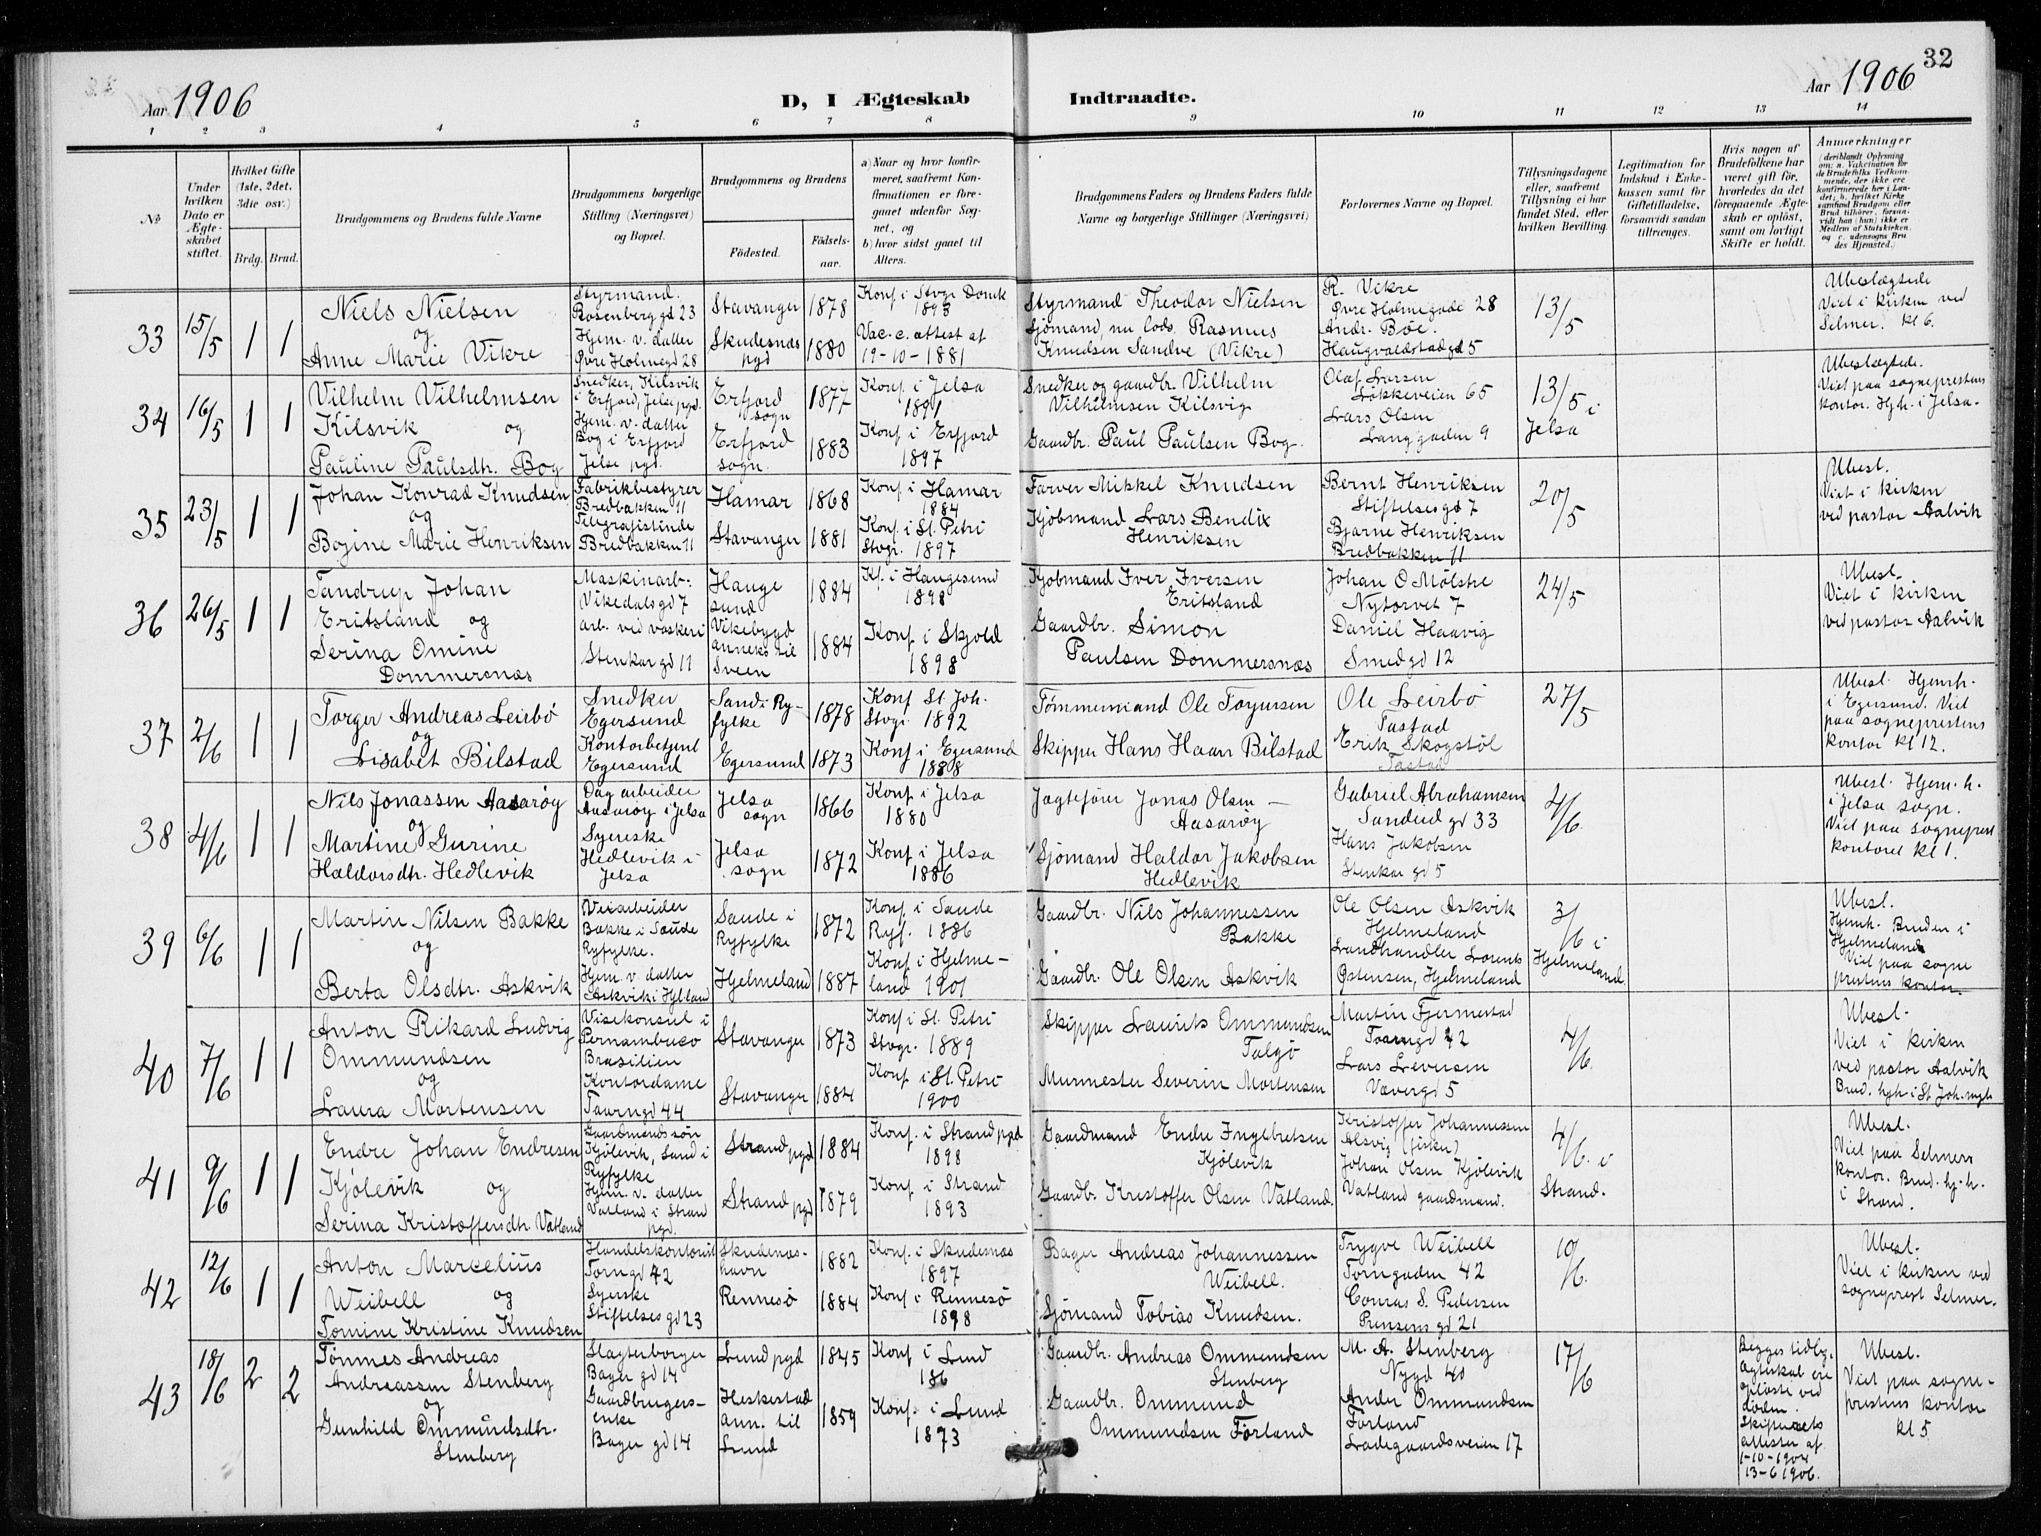 32
Aar 1906
D, I Ægteskab Indtraadte.
Aar 1906
1 2 3 4 5 6 7 8 9 10 11 12 13 14
№
Under hvilken Dato er Ægteskabet stiftet.
Hvilket Gifte (1ste, 2det, 3die osv.)
Brdg. Brud.
Brudgommens og Brudens fulde Navne
Brudgommens borgerlige Stilling (Næringsvei) og Bopæl.
Brudgommens og Brudens
Fødested.
Fødselsaar.
a) Naar og hvor konfirmeret, saafremt Konfirmationen er foregaaet udenfor Sognet, og
b) hvor sidst gaaet til Alters.
Brudgommens Faders og Brudens Faders fulde Navne og borgerlige Stillinger (Næringsvei)
Forlovernes Navne og Bopæl.
Tillysningsdagene eller, saafremt Tillysning ei har fundet Sted, efter hvilken Bevilling.
Legitimation for Indskud i Enkekassen samt for Giftetilladelse, forsaavidt saadan tiltrænges.
Hvis nogen af Brudefolkene har været gift før, hvorledes da det foregaaende Ægteskab er opløst, samt om lovligt Skifte er holdt.
Anmærkninger
(deriblandt Oplysning om: a. Vakcination for de Brudefolks Vedkommende, der ikke ere konfirmerede her i Landet; b. hvilket Kirkesamfund Brudgom eller Brud tilhører, forsaavidt han (hun) ikke er Medlem af Statskirken, og c. udensogns Brudes Hjemsted.)
33 15/5 1 1
Niels Nielsen
og
Anne Marie Vikre
Styrmand.
Rosenberg gd 23
Hjem. v. datter
Øvre Holmegd 28
Stavanger 1878
Skudesnæs pgd 1880
Konf i Stvgr Domk 1893
Vac. c. attest af 19-10-1881
Styrmand Theodor Nielsen
Sjömand, nu lods, Rasmus
Knudsen Sandve (Vikre)
R. Vikre
Øvre Holmegade 28
Andr. Bøe.
Haugvaldstad gd 5
13/5
Ubeslægtede
Viet i kirken ved
Selmer. kl 6.
34 16/5 1 1
Vilhelm Vilhelmsen
Kilsvik og
Pauline Paulsdtr. Bog
Snedker, Kilsvik
i Erfjord, Jelse pgd.
Hjem. v. datter
Bog i Erfjord
Jelse pgd.
Erfjord sogn 1877
Erfjord sogn. 1883
Konf i Jelsa 1891
Konf. i Erfjord 1897
Snedker og gaardbr. Vilhelm
Vilhelmsen Kilsvig
Gaardbr. Paul Paulsen Bog.
Olaf Larsen
Løkkeveien 65
Lars Olsen
Langgaden 9
13/5 i Jelsa
Ubeslægtede.
Viet paa sogneprestens
kontor. Hjh. i Jelsa.
35 23/5 1 1
Johan Konrad Knudsen
og
Bojine Marie Henriksen
Fabrikbestyrer
Bredbakken 11
Telegrafistinde
Bredbakken 11
Hamar 1868
Stavanger 1881
Konf i Hamar 1884
Konf. i St. Petri Stvgr. 1897
Farver Mikkel Knudsen
Kjöbmand Lars Bendix
Henriksen
Bernt Henriksen
Stiftelsesgd 7
Bjarne Henriksen
Bredbakken 11
20/5
Ubesl.
Viet i kirken
ved pastor Aalvik
36 26/5 1 1
Tandrup Johan
Eritsland og
Serina Omine
Dommersnæs
Maskinarb.
Vikedalsgd 7
arb. ved vaskeri
Stenkargd 11
Haugesund 1884
Vikebygd anneks til Sveen 1884
Kf. i Haugesund 1898
Konf i Skjold 1898
Kjøbmand Iver Iversen
Eritsland
Gaardbr. Simon
Paulsen Dommersnæs
Johan O Mölstre
Nytorvet 7
Daniel Haavig
Smedgd 12
24/5
Ubesl.
Viet i kirken
ved pastor Aalvik
37 2/6 1 1
Torger Andreas Leirbö
og
Lisabet Bilstad
Snedker
Egersund
Kontorbetjent
Egersund
Sand i Ryfylke 1878
Egersund 1873
Konf St. Joh. Stvgr. 1892
Konf i Egersund 1888
Tømmermand Ole Torjersen
Skipper Hans Haar Bilstad
Ole Leirbö
Tastad
Erik Skogstöl
Tastad
27/5
Ubesl. Hjemh.
i Egersund. Viet
paa sogneprestens
kontor kl 12.
38 4/6 1 1
Nils Jonassen Aasarøy
og
Martine Gurine
Haldorsdtr. Hedlevik
Dagarbeider
Aasarøy i Jelsa
Syerske
Hedlevik i
Jelsa
Jelsa sogn 1866
Jelsa sogn 1872
Konf i Jelsa 1880
Konf i Jelsa 1886
Jagtefører Jonas Olsen
Aasarøy
Sjömand Haldor Jakobsen
Hedlevik
Gabriel Abrahamsen
Sandeid gd 33
Hans Jakobsen
Stenkar gd 5
4/6
Ubesl. Hjem. h.
i Jelsa sogn.
Viet paa sogneprest
kontoret kl 1.
39 6/6 1 1
Martin Nilsen Bakke
og
Berta Olsdtr. Askvik
Veiarbeider
Bakke i Saude
Ryfylke.
Hjem v. datter
Askvik i Hjlland
Saude i Ryfylke 1872
Hjelmeland 1887
Konf. i Saude Ryf. 1886
Konf i Hjelmeland 1901
Gaardbr. Nils Johannessen
Bakke
Gaardbr. Ole Olsen Askvik
Ole Olsen Askvik
Hjelmeland
Landhandler Lorents
Østensen, Hjelmeland
3/6 i Hjelmeland
Ubesl.
Hjemh. Bruden i
Hjelmeland
Viet paa sogne
prestens kontor.
40 7/6 1 1
Anton Rikard Ludvig
Ommundsen
og
Laura Mortensen
Visekonsul i
Pernambuco
Brasilien
Kontordame
Taarngd 44
Stavanger 1873
Stavanger 1884
Konf i St. Petri Stvgr. 1889
Konf i St. Petri 1900
Skipper Laurits Ommundsen
Talgö
Murmester Severin Mortensen
Martin Fjermestad
Taarngd 42
Lars Iversen
Vævergd 5
4/6
Ubesl.
Viet i kirken
ved pastor Aalvik
Brud. hjh i St Joh. mgh
41 9/6 1 1
Endre Johan Endresen
Kjölevik og
Serina Kristoffersdtr Vatland
Gaardmandssön
Kjölevik, Sand i
Ryfylke
Hjem. v. datter
Vatland i Strand
pgd.
Strand pgd 1884
Strand pgd 1879
Konf. i Strand pgd 1898
Konf i Strand 1893
Gaardmand Endre Ingebretsen
Kjölevik
Gaardbr. Kristoffer Olsen Vatland.
Kristoffer Johannessen
Alsvig (fisker)
Johan Olsen Kjölevik
Vatland gaardmand.
4/6 i Strand.
Ubesl.
Viet paa Selmers
kontor. Brud. hj. h.
i Strand.
42 12/6 1 1
Anton Marcelius
Weibell og
Tomine Kristine Knudsen
Handelskontorist
Torngd 42
Syerske
Stiftelsesgd 23
Skudenæshavn 1882
Rennesö 1884
Konf. i Skudesnæs 1897
Konf i Rennesö 1898
Bager Andreas Johannessen
Weibell.
Sjömand Tobias Knudsen.
Trygve Weibell
Torngaden 42
Conrad S. Pedersen
Prinsensgd 21
10/6
Ubesl.
Viet i kirken ved
sogneprest Selmer.
43 18/6 2 2
Tönnes Andreas
Andreassen Stenberg
og
Gunhild Ommundsdtr.
Stenberg
Slagterborger
Bager gd 14
Gaardbrugers-
enke
Bager gd 14
Lund pgd 1845
Heskestad ann. til Lund 1859
Konf i Lund 186
Konf. i Lund 1873
Gaardbr. Andreas Ommundsen
Stenberg
Gaardbr. Ommund
Ommundsen Förland
M. A. Stenberg
Nygd 40
Ander Ommundsen
Förland
Ladegaardsveien 17
17/6
Begges tidl.
ægteskab ere
opløste ved
døden.
Skifterets
attester af
1-10-1904
13-6 1906.
Ubesl.
Viet paa sogne-
prestens kontor
kl 5